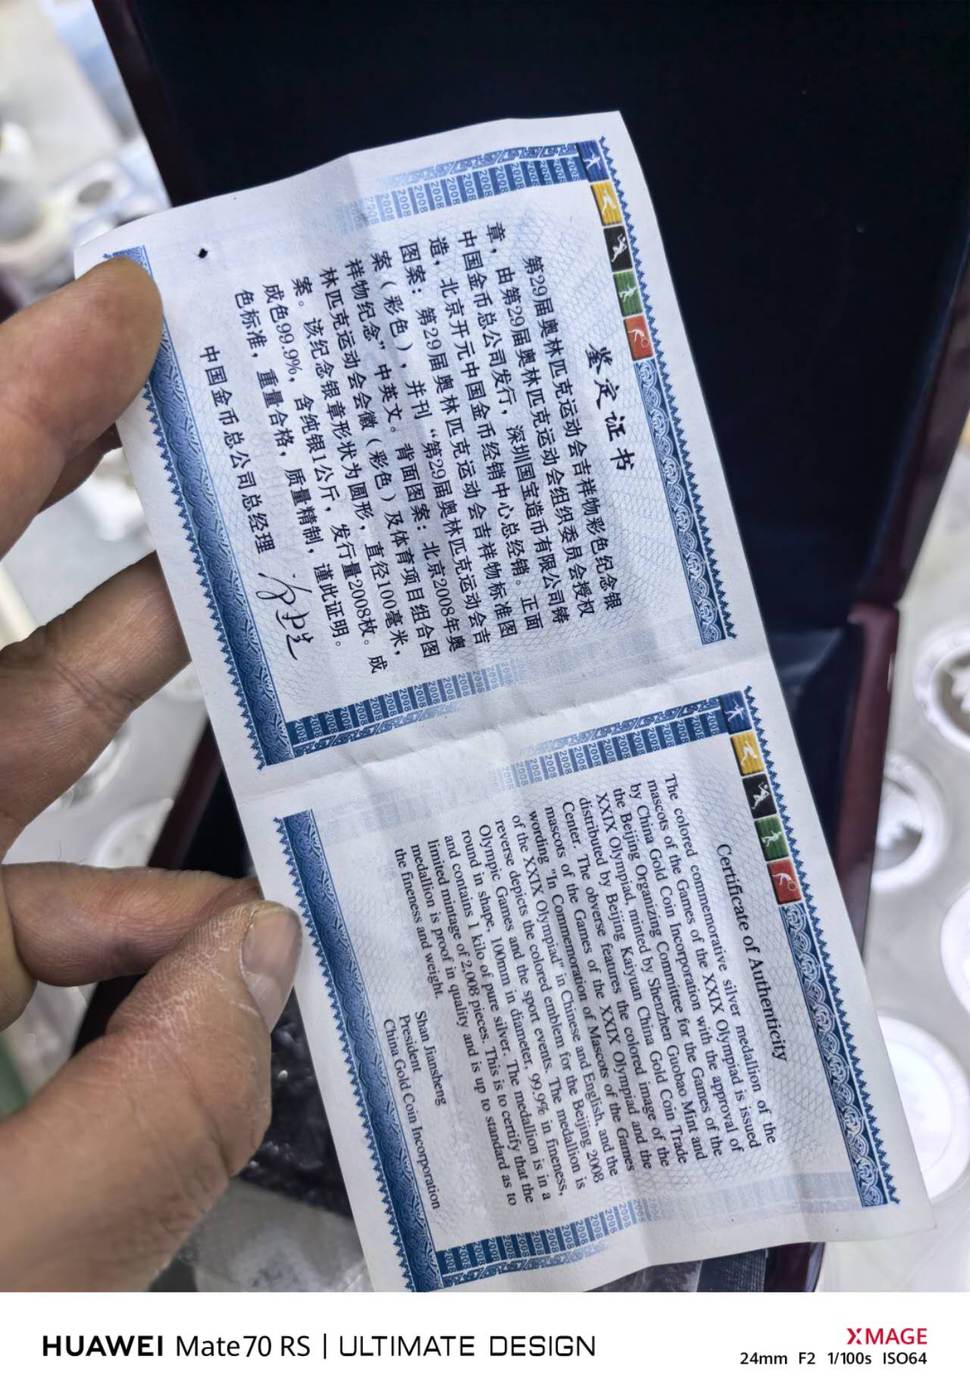 鉴定证书
第29届奥林匹克运动会吉祥物彩色纪念银
章，由第29届奥林匹克运动会组织委员会授权
中国金币总公司发行，深圳国宝造币有限公司铸
造，北京开元中国金币经销中心总经销。正面
图案：第29届奥林匹克运动会吉祥物标准图
案（彩色），并刊“第29届奥林匹克运动会吉
祥物纪念”中英文。背面图案：北京2008年奥
林匹克运动会会徽（彩色）及体育项目组合图
案。该纪念银章形状为圆形，直径100毫米，
成色99.9%，含纯银1公斤，发行量2008枚。成
色标准，重量合格，质量精制，谨此证明。
中国金币总公司总经理
Certificate of Authenticity
The colored commemorative silver medallion of the
mascots of the Games of the XXIX Olympiad is issued
by China Gold Coin Incorporation with the approval of
the Beijing Organizing Committee for the Games of the
XXIX Olympiad, minted by Shenzhen Guobao Mint and
distributed by Beijing Kaiyuan China Gold Coin Trade
Center. The obverse features the colored image of the
mascots of the Games of the XXIX Olympiad and the
wording "In Commemoration of Mascots of the Games
of the XXIX Olympiad" in Chinese and English, and the
reverse depicts the colored emblem for the Beijing 2008
Olympic Games and the sport events. The medallion is
round in shape, 100mm in diameter, 99.9% in fineness,
and contains 1 kilo of pure silver. The medallion is in a
limited mintage of 2,008 pieces. This is to certify that the
medallion is proof in quality and is up to standard as to
the fineness and weight.
Shan Jiansheng
President
China Gold Coin Incorporation
HUAWEI Mate70 RS | ULTIMATE DESIGN
XMAGE
24mm F2 1/100s ISO64